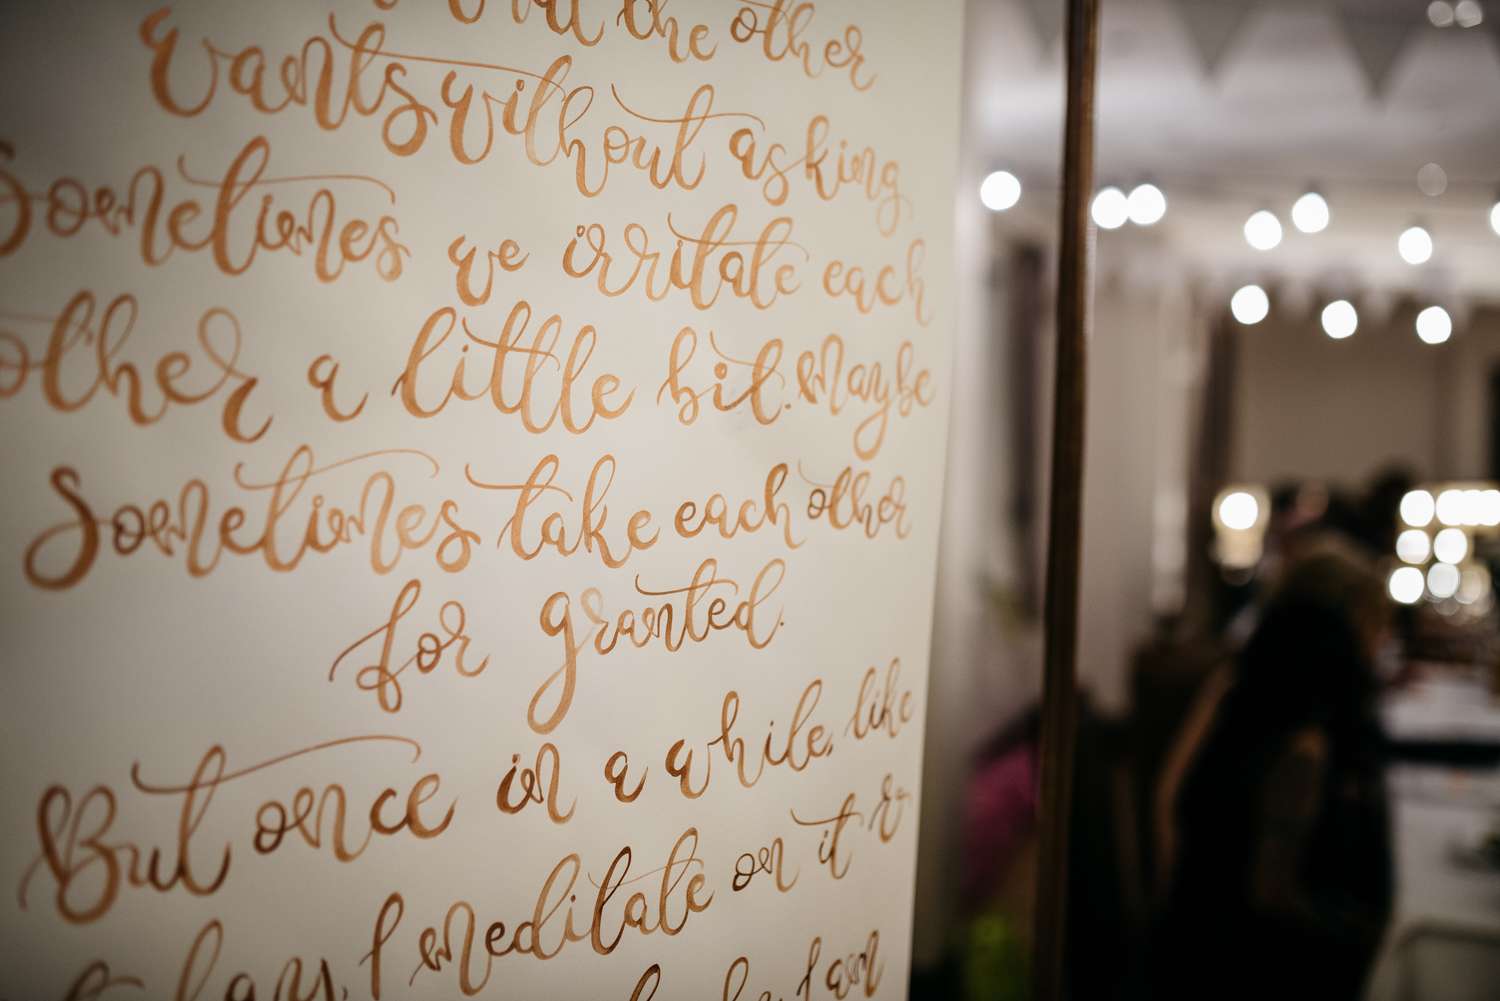 the other
wants without asking
Sometimes we irritate each
other a little bit. Maybe
Sometimes take each other
for granted.
But once in a while, like
I meditate on it &
I am